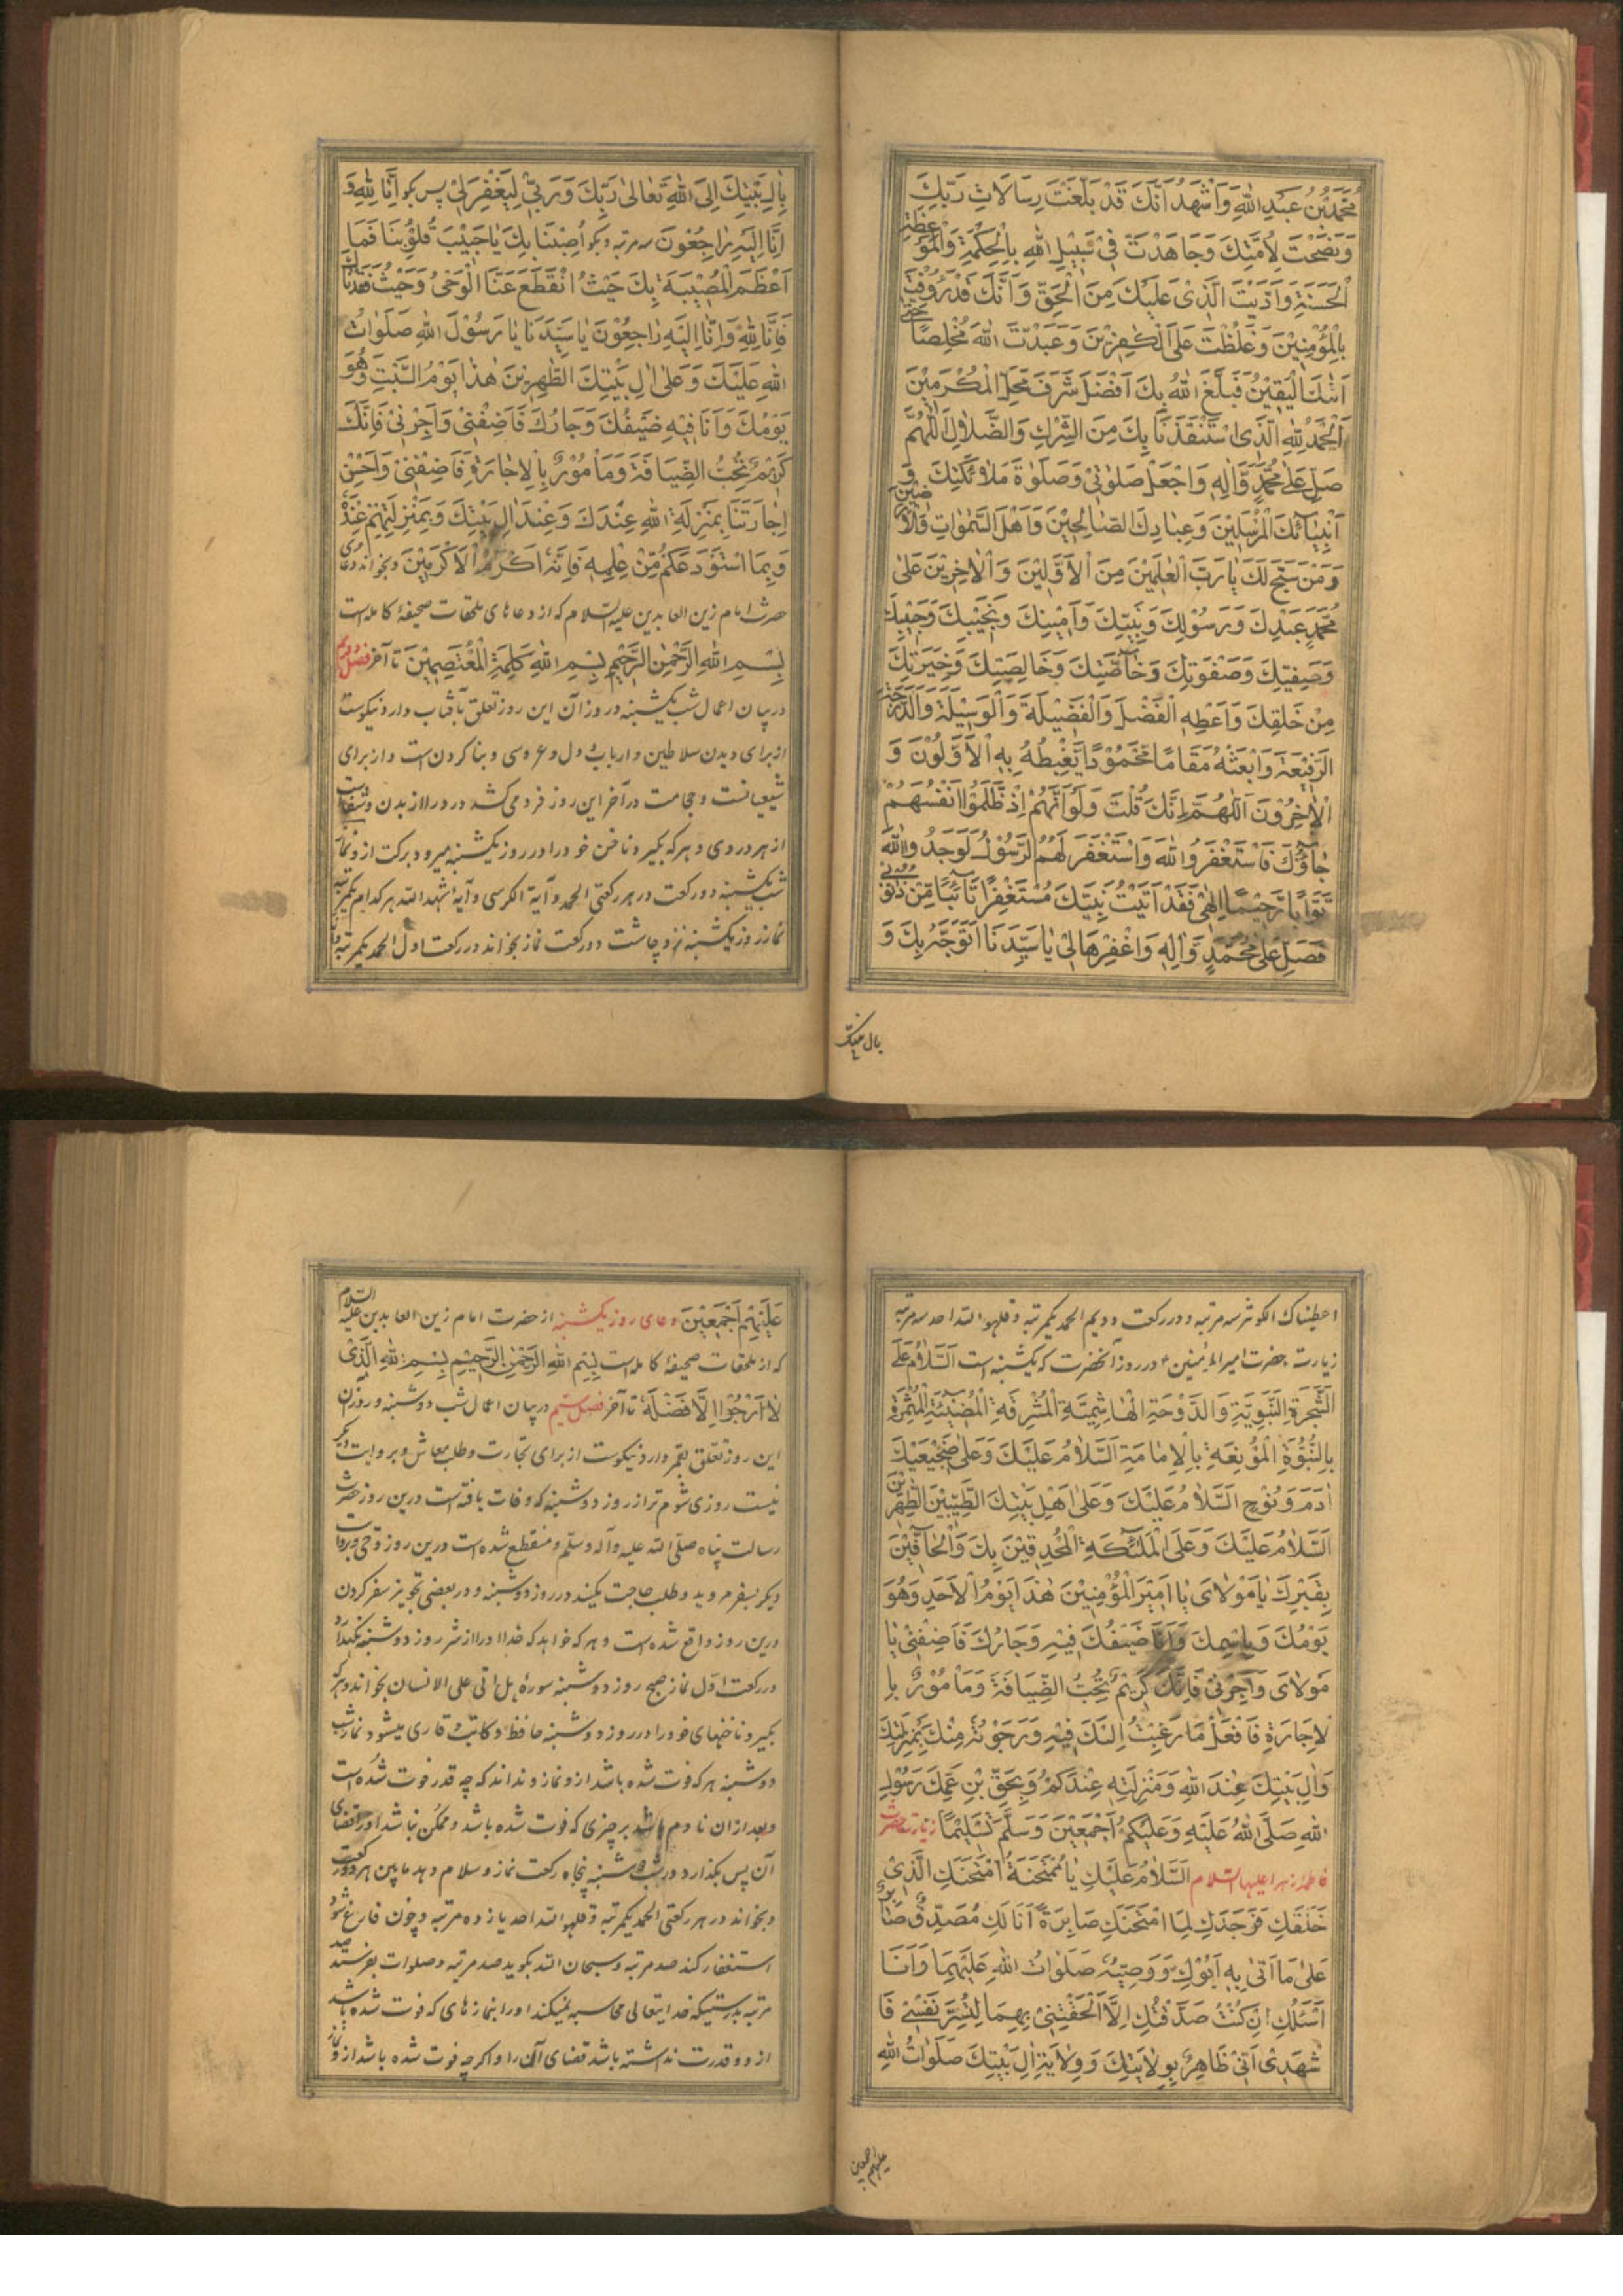 مُحَمَّدُ بْنُ عَبْدِ اللهِ وَاَشْهَدُ اَنَّكَ قَدْ بَلَّغْتَ رِسَالَاتِ رَبِّكَ
وَنَصَحْتَ لِاُمَّتِكَ وَجَاهَدْتَ فِىْ سَبِيْلِ اللهِ بِالْحِكْمَةِ وَالْمَوْعِظَةِ
الْحَسَنَةِ وَاَدَّيْتَ الَّذِىْ عَلَيْكَ مِنَ الْحَقِّ وَاَنَّكَ قَدْ رَؤُفْتَ
بِالْمُؤْمِنِيْنَ وَغَلُظْتَ عَلَى الْكٰفِرِيْنَ وَعَبَدْتَ اللهَ مُخْلِصًا حَتّٰى
اَتٰكَ الْيَقِيْنُ فَبَلَغَ اللهُ بِكَ اَفْضَلَ شَرَفِ مَحَلِّ الْمُكْرَمِيْنَ
اَلْحَمْدُ لِلّٰهِ الَّذِى اسْتَنْقَذَنَا بِكَ مِنَ الشِّرْكِ وَالضَّلَالِ اَللّٰهُمَّ
صَلِّ عَلٰى مُحَمَّدٍ وَّاٰلِهٖ وَاجْعَلْ صَلَوٰتِىْ وَصَلَوٰةَ مَلٰائِكَتِكَ وَ
اَنْبِيَآئِكَ الْمُرْسَلِيْنَ وَعِبَادِكَ الصَّالِحِيْنَ وَاَهْلِ السَّمٰوَاتِ وَالْاَرَضِيْنَ
وَمَنْ سَبَّحَ لَكَ يَا رَبَّ الْعٰلَمِيْنَ مِنَ الْاَوَّلِيْنَ وَالْاٰخِرِيْنَ عَلٰى
مُحَمَّدٍ عَبْدِكَ وَرَسُوْلِكَ وَنَبِيِّكَ وَاَمِيْنِكَ وَنَجِيْبِكَ وَحَبِيْبِكَ
وَصَفِيِّكَ وَصَفْوَتِكَ وَخَآصَّتِكَ وَخَالِصَتِكَ وَخِيَرَتِكَ
مِنْ خَلْقِكَ وَاَعْطِهِ الْفَضْلَ وَالْفَضِيْلَةَ وَالْوَسِيْلَةَ وَالدَّرَجَةَ
الرَّفِيْعَةَ وَابْعَثْهُ مَقَامًا مَّحْمُوْدًا يَّغْبِطُهُ بِهِ الْاَوَّلُوْنَ وَ
الْاٰخِرُوْنَ اَللّٰهُمَّ اِنَّكَ قُلْتَ وَلَوْ اَنَّهُمْ اِذْ ظَّلَمُوْا اَنْفُسَهُمْ
جَآؤُكَ فَاسْتَغْفَرُوا اللهَ وَاسْتَغْفَرَ لَهُمُ الرَّسُوْلُ لَوَجَدُوا اللهَ
تَوَّابًا رَّحِيْمًا اِلٰهِىْ فَقَدْ اَتَيْتُ نَبِيَّكَ مُسْتَغْفِرًا تَآئِبًا مِّنْ ذُنُوْبِىْ
فَصَلِّ عَلٰى مُحَمَّدٍ وَّاٰلِهٖ وَاغْفِرْهَا لِىْ يَا سَيِّدَنَا اَتَوَجَّهُ بِكَ وَ
بِاٰلِ بَيْتِكَ اِلَى اللهِ تَعَالٰى رَبِّكَ وَرَبِّىْ لِيَغْفِرَ لِىْ پس بگو اِنَّا لِلّٰهِ وَ
اِنَّا اِلَيْهِ رَاجِعُوْنَ سه مرتبه و بگو اُصِبْنَا بِكَ يَا حَبِيْبَ قُلُوْبِنَا فَمَا
اَعْظَمَ الْمُصِيْبَةَ بِكَ حَيْثُ انْقَطَعَ عَنَّا الْوَحْىُ وَحَيْثُ فَقَدْنَاكَ
فَاِنَّا لِلّٰهِ وَاِنَّا اِلَيْهِ رَاجِعُوْنَ يَا سَيِّدَنَا يَا رَسُوْلَ اللهِ صَلَوَاتُ
اللهِ عَلَيْكَ وَعَلٰى اٰلِ بَيْتِكَ الطَّاهِرِيْنَ هٰذَا يَوْمُ السَّبْتِ وَهُوَ
يَوْمُكَ وَاَنَا فِيْهِ ضَيْفُكَ وَجَارُكَ فَاَضِفْنِىْ وَاَجِرْنِىْ فَاِنَّكَ
كَرِيْمٌ تُحِبُّ الضِّيَافَةَ وَمَأْمُوْرٌ بِالْاِجَارَةِ فَاَضِفْنِىْ وَاَحْسِنْ
اِجَارَتَنَا بِمَنْزِلَةِ اللهِ عِنْدَكَ وَعِنْدَ اٰلِ بَيْتِكَ وَبِمَنْزِلَتِهِمْ عِنْدَهُ
وَبِمَا اسْتَوْدَعَكُمْ مِّنْ عِلْمِهٖ فَاِنَّهُ اَكْرَمُ الْاَكْرَمِيْنَ و بخواند دعای
حضرت امام زین العابدین علیه السلام که از دعاهای ملحقات صحیفهٔ کامله است
بِسْمِ اللهِ الرَّحْمٰنِ الرَّحِيْمِ بِسْمِ اللهِ كَلِمَةِ الْمُعْتَصِمِيْنَ تا آخر فصل دویم
در بیان اعمال شب یکشنبه و روز آن این روز تعلق بآفتاب دارد نیکوست
از برای دیدن سلاطین و ارباب دول و عروسی و بنا کردن است و از برای
شیعیانست و حجامت در آخر این روز فرو می کشد درد را از بدن و شفاست
از هر دردی و هر که بگیرد ناخن خود را در روز یکشنبه میرود برکت از و نماز
شب یکشنبه دو رکعت در هر رکعتی الحمد و آیة الکرسی و آیهٔ شهد الله هر کدام یکمرتبه
نماز روز یکشنبه نزد چاشت دو رکعت نماز بخواند در رکعت اول الحمد یکمرتبه و انا
بال بیتک
اعطیناک الکوثر سه مرتبه و در رکعت دویم الحمد یکمرتبه و قلهو الله احد سه مرتبه
زیارت حضرت امیر المؤمنین ع در روز آنحضرت که یکشنبه است اَلسَّلَامُ عَلَى
الشَّجَرَةِ النَّبَوِيَّةِ وَالدَّوْحَةِ الْهَاشِمِيَّةِ الْمُشْرِقَةِ الْمُضِيْئَةِ الْمُثْمِرَةِ
بِالنُّبُوَّةِ الْمُوْنِعَةِ بِالْاِمَامَةِ اَلسَّلَامُ عَلَيْكَ وَعَلٰى ضَجِيْعَيْكَ
اٰدَمَ وَنُوْحٍ اَلسَّلَامُ عَلَيْكَ وَعَلٰى اَهْلِ بَيْتِكَ الطَّيِّبِيْنَ الطَّاهِرِيْنَ
اَلسَّلَامُ عَلَيْكَ وَعَلَى الْمَلٰئِكَةِ الْمُحْدِقِيْنَ بِكَ وَالْحَآفِّيْنَ
بِقَبْرِكَ يَا مَوْلَاىَ يَا اَمِيْرَ الْمُؤْمِنِيْنَ هٰذَا يَوْمُ الْاَحَدِ وَهُوَ
يَوْمُكَ وَبِاسْمِكَ وَاَنَا ضَيْفُكَ فِيْهِ وَجَارُكَ فَاَضِفْنِىْ يَا
مَوْلَاىَ وَاَجِرْنِىْ فَاِنَّكَ كَرِيْمٌ تُحِبُّ الضِّيَافَةَ وَمَأْمُوْرٌ بِا
لْاِجَارَةِ فَافْعَلْ مَا رَغِبْتُ اِلَيْكَ فِيْهِ وَرَجَوْتُهُ مِنْكَ بِمَنْزِلَتِكَ
وَاٰلِ بَيْتِكَ عِنْدَ اللهِ وَمَنْزِلَتِهٖ عِنْدَكُمْ وَبِحَقِّ بْنِ عَمِّكَ رَسُوْلِ
اللهِ صَلَّى اللهُ عَلَيْهِ وَعَلَيْكُمْ اَجْمَعِيْنَ وَسَلَّمَ تَسْلِيْمًا زیارت حضرت
فاطمه زهرا علیها السلام اَلسَّلَامُ عَلَيْكِ يَا مُمْتَحَنَةُ امْتَحَنَكِ الَّذِىْ
خَلَقَكِ فَوَجَدَكِ لِمَا امْتَحَنَكِ صَابِرَةً اَنَا لَكِ مُصَدِّقٌ صَابِرٌ
عَلٰى مَا اَتٰى بِهٖ اَبُوْكِ وَوَصِيُّهُ صَلَوَاتُ اللهِ عَلَيْهِمَا وَاَنَا
اَسْئَلُكِ اِنْ كُنْتُ صَدَّقْتُكِ اِلَّا اَلْحَقْتِنِىْ بِهِمَا لِتُسَرَّ نَفْسِىْ فَا
شْهَدِىْ اَنِّىْ طَاهِرٌ بِوِلَايَتِكِ وَوِلَايَةِ اٰلِ بَيْتِكِ صَلَوَاتُ اللهِ
عَلَيْهِمْ اَجْمَعِيْنَ دعای روز یکشنبه از حضرت امام زین العابدین علیه السلام
که از ملحقات صحیفهٔ کامله است بِسْمِ اللهِ الرَّحْمٰنِ الرَّحِيْمِ بِسْمِ اللهِ الَّذِىْ
لَا اَرْجُوْا اِلَّا فَضْلَهُ تا آخر فصل سیم در بیان اعمال شب دوشنبه و روز آن
این روز تعلق بقمر دارد نیکوست از برای تجارت و طلب معاش و بروایت دیگر
نیست روزی شوم تر از روز دوشنبه که وفات یافته است درین روز حضرت
رسالت پناه صلی الله علیه و آله و سلم و منقطع شده است درین روز وحی و بروایت
دیگر بسفر مروید و طلب حاجت مکنید در روز دوشنبه و در بعضی تجویز سفر کردن
درین روز واقع شده است و هر که خواهد که خدا او را از شر روز دوشنبه نگهدارد
در رکعت اول نماز صبح روز دوشنبه سورهٔ هل اتی علی الانسان بخواند و هر که
بگیرد ناخنهای خود را در روز دوشنبه حافظ و کاتب و قاری میشود نماز شب
دوشنبه هر که فوت شده باشد از و نماز و نداند که چه قدر فوت شده است
و بعد از ان نادم باشد بر چیزی که فوت شده باشد و ممکن نباشد او را قضای
آن پس بگذارد در شب دوشنبه پنجاه رکعت نماز و سلام دهد مابین هر دو رکعت
و بخواند در هر رکعتی الحمد یکمرتبه و قلهو الله احد یازده مرتبه و چون فارغ شود
استغفار کند صد مرتبه و سبحان الله بگوید صد مرتبه و صلوات بفرستد صد
مرتبه بدرستیکه خدایتعالی محاسبه نمیکند او را بنمازهای که فوت شده باشد
از و و قدرت نداشته باشد قضای آن را و اگر چه فوت شده باشد از و نماز
علیهم اجمعین